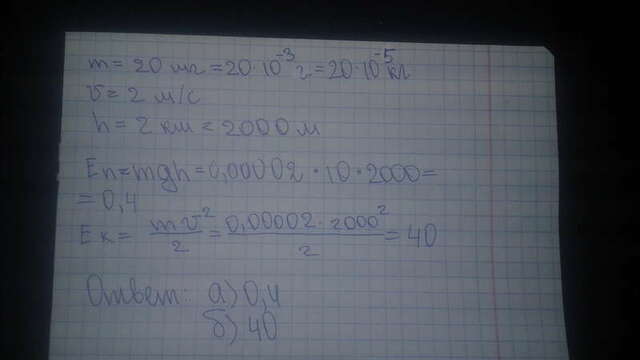 m = 20 мг = 20·10⁻³ г = 20·10⁻⁵ кг
v = 2 м/с
h = 2 км = 2000 м
Eп = mgh = 0,00002 · 10 · 2000 =
= 0,4
Eк = mv²/2 = 0,00002 · 2000²/2 = 40
Ответ: а) 0,4
б) 40